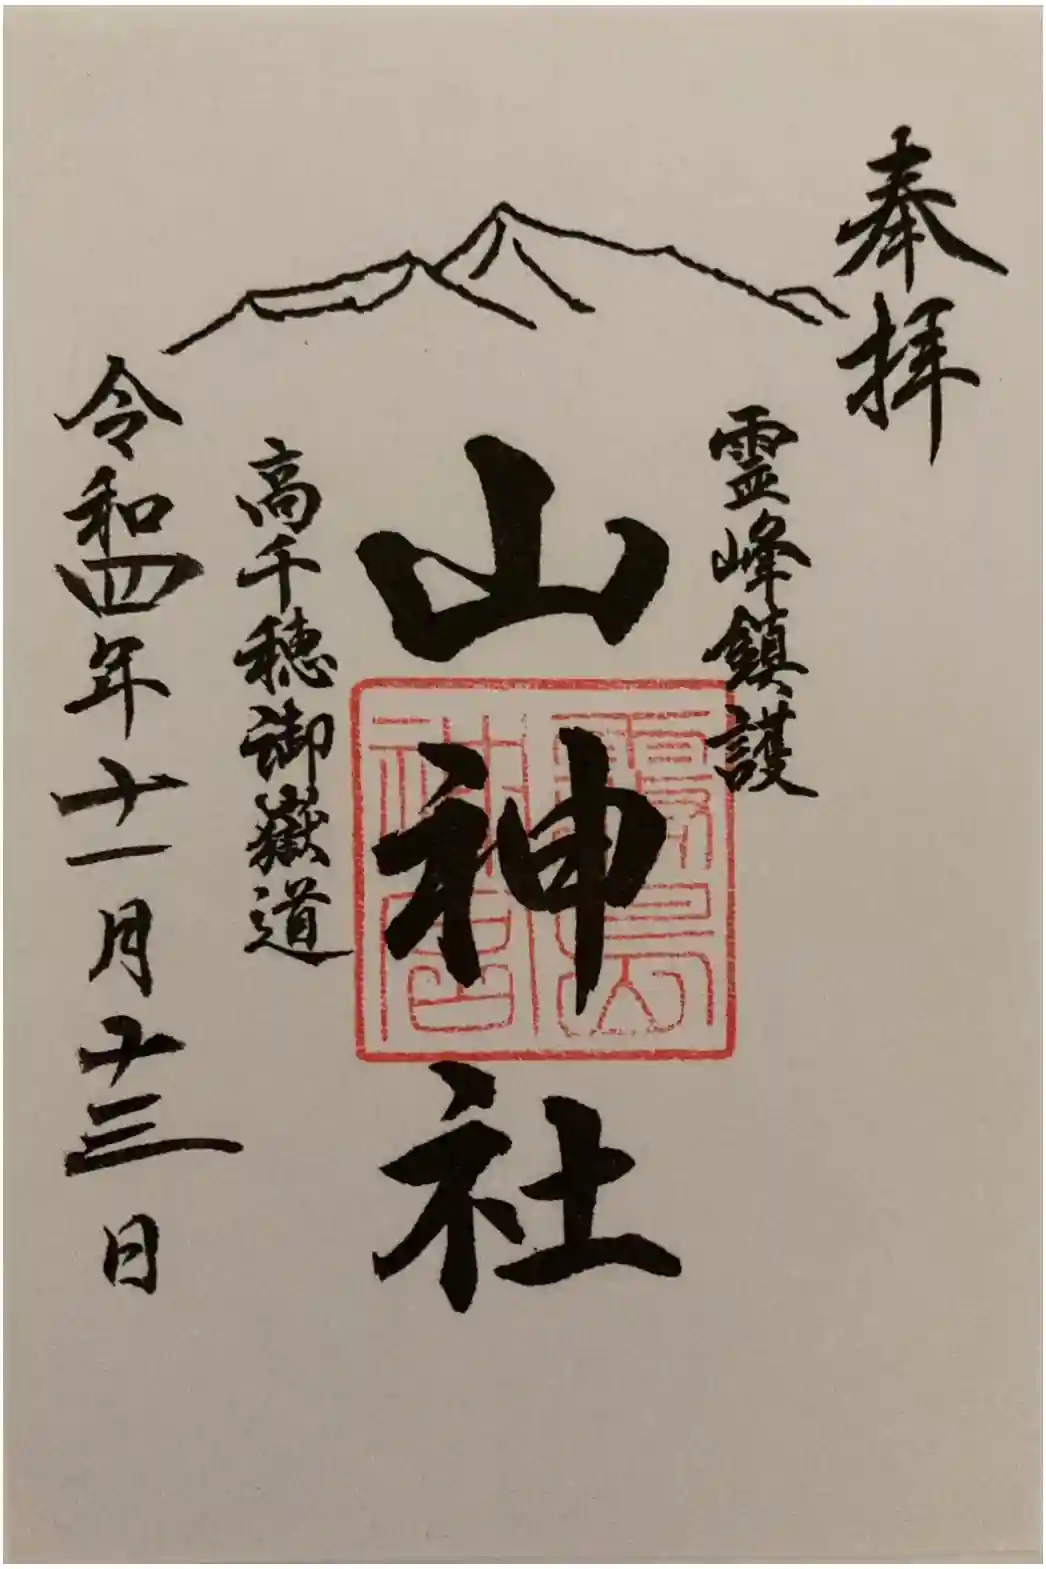 奉拝
霊峰鎮護
山神社
高千穂御嶽道
令和四年十一月十三日
霧島
神宮